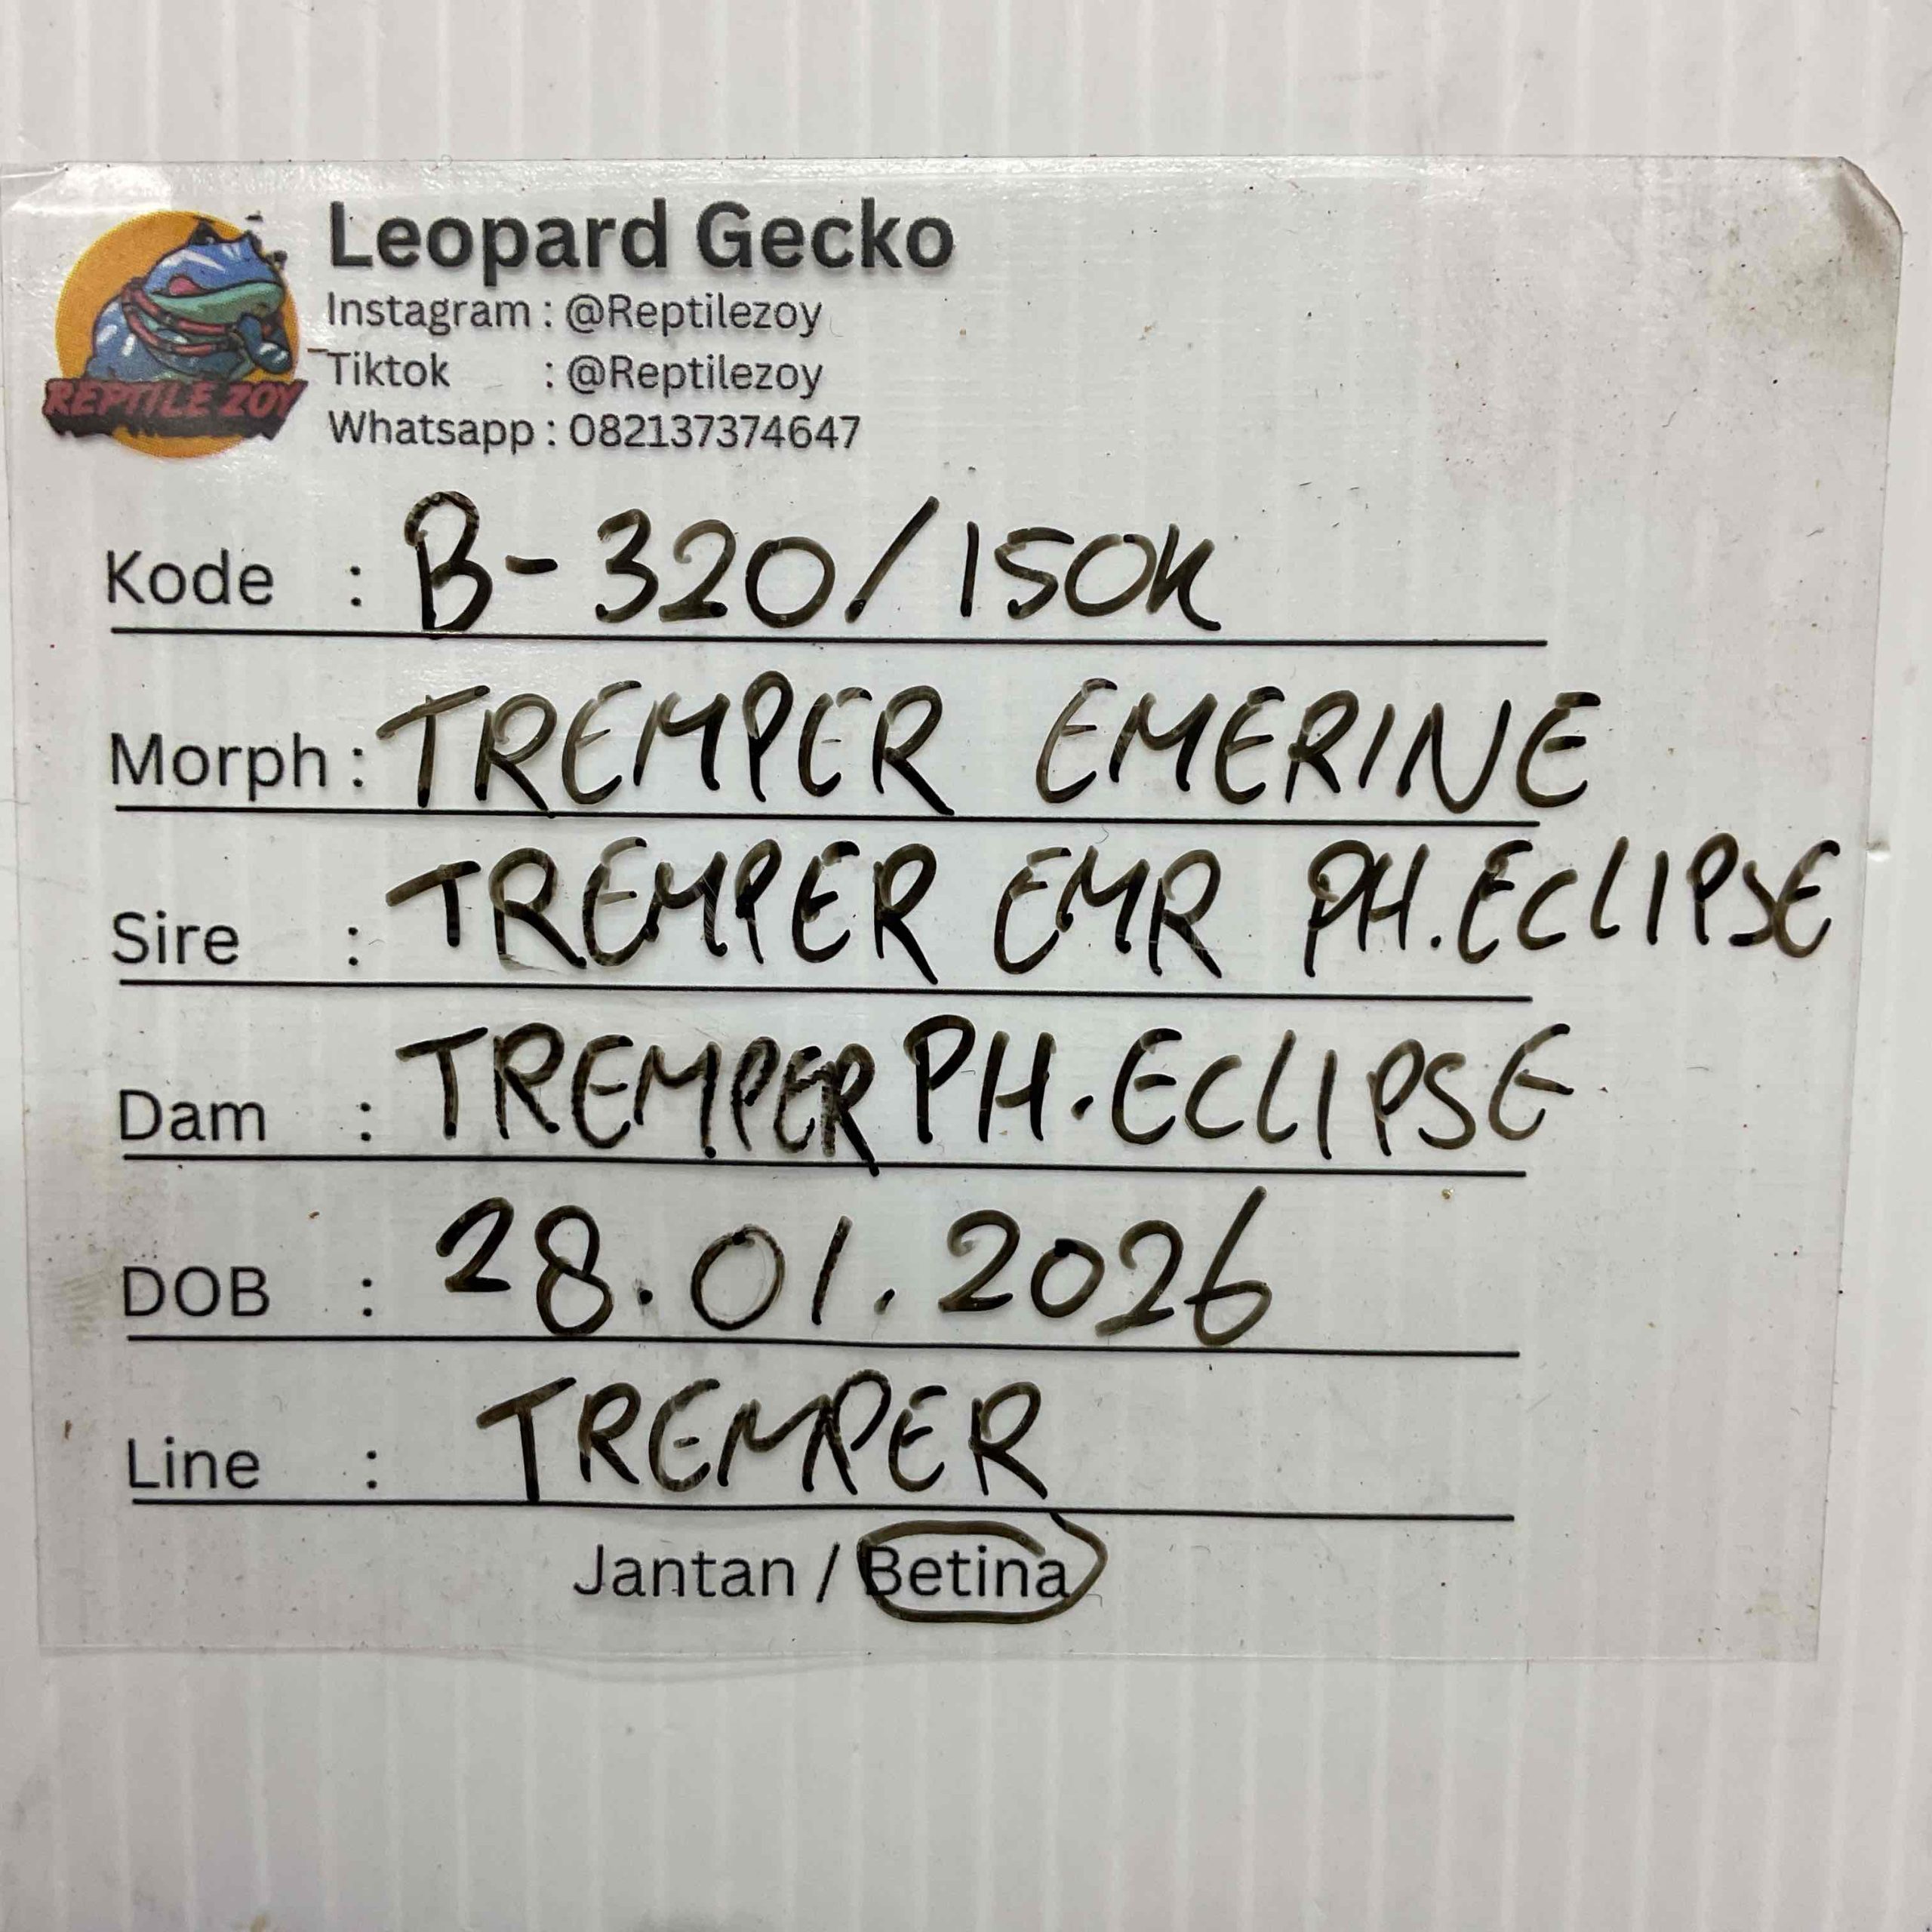 REPTILE ZOY
Leopard Gecko
Instagram : @Reptilezoy
Tiktok : @Reptilezoy
Whatsapp : 082137374647
Kode : B-320/150K
Morph : TREMPER EMERINE
Sire : TREMPER EMR PH.ECLIPSE
Dam : TREMPER PH.ECLIPSE
DOB : 28.01.2026
Line : TREMPER
Jantan / Betina